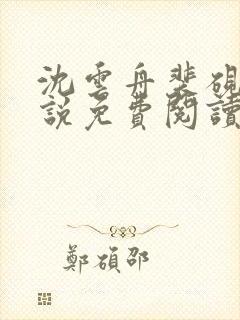 沈雲舟裴硯
說免費閱讀
鄭碩邵